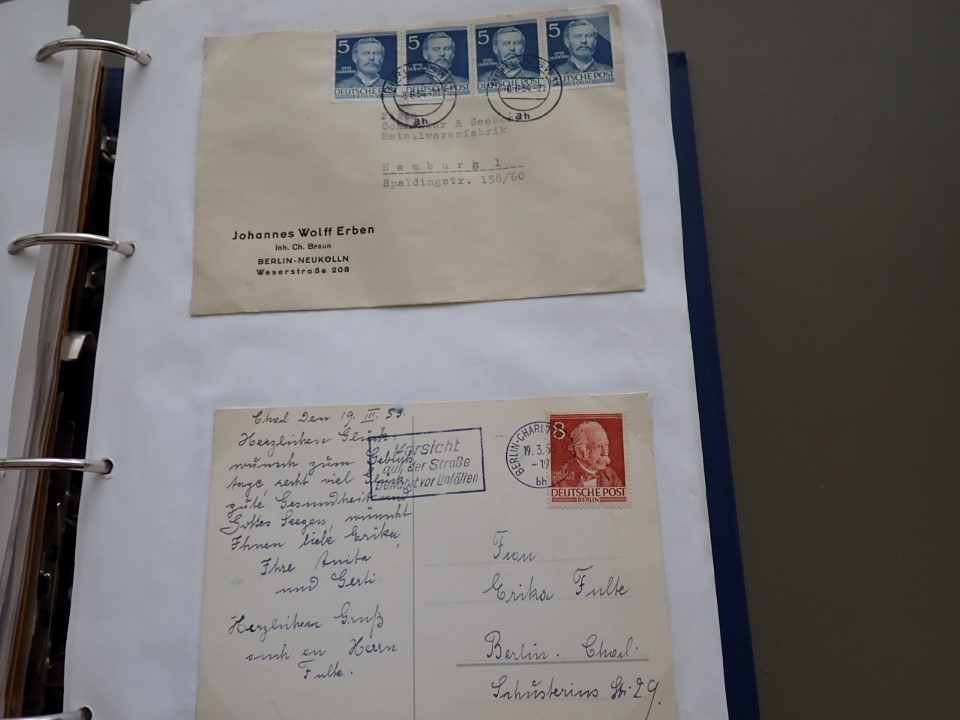 5 5 5 5
DEUTSCHE POST DEUTSCHE POST DEUTSCHE POST DEUTSCHE POST
ah ah
Metallwarenfabrik
Hamburg 1
Spaldingstr. 158/60
Johannes Wolff Erben
Inh. Ch. Braun
BERLIN-NEUKOLLN
Weserstraße 208
Chad Den 19. III. 53.
Herzlichen Glück-
wunsch zum Geburts
tage, recht viel Glück
gute Gesundheit und
Gottes Seegen, wünscht
Ihnen liebe Erika,
Ihre Anita
und Gerti
Herzlichen Gruß
auch an Herrn
Fulte.
Vorsicht
auf der Straße
bewahrt vor Unfällen
BERLIN-CHARL
19. 3. 5
-19
bh
8
DEUTSCHE POST
BERLIN
Frau
Erika Fulte
Berlin. Charl.
Schusterius Str. 29.